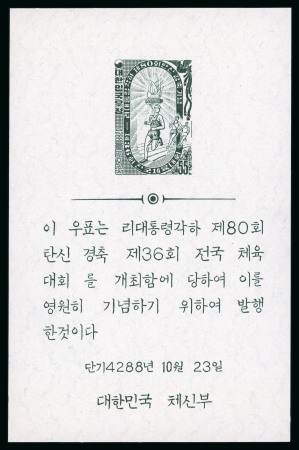 대한민국우정
55
이 우표는 리대통령각하 제80회
탄신 경축 제36회 전국 체육
대회 를 개최함에 당하여 이를
영원히 기념하기 위하여 발행
한것이다
단기4288년 10월 23일
대한민국 체신부